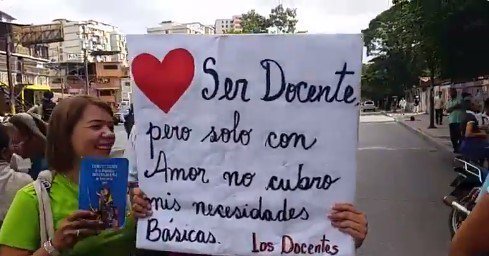 ❤ Ser Docente,
pero solo con
Amor no cubro
mis necesidades
Básicas.
Los Docentes